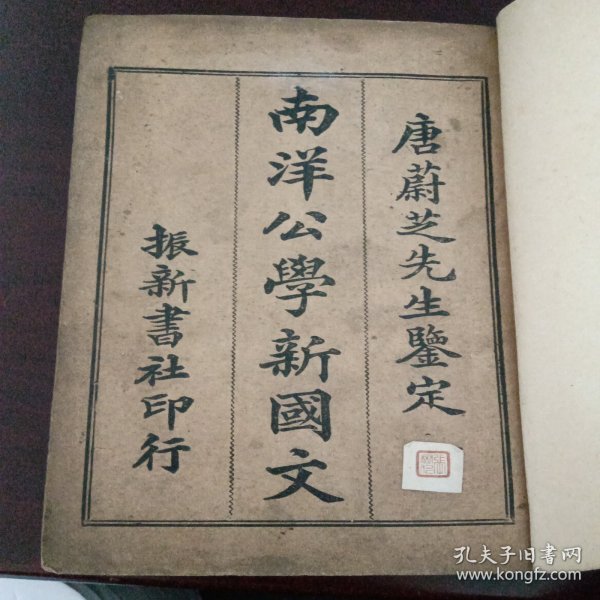 唐蔚芝先生鑒定
南洋公學新國文
振新書社印行
孔夫子旧书网
www.kongfz.com